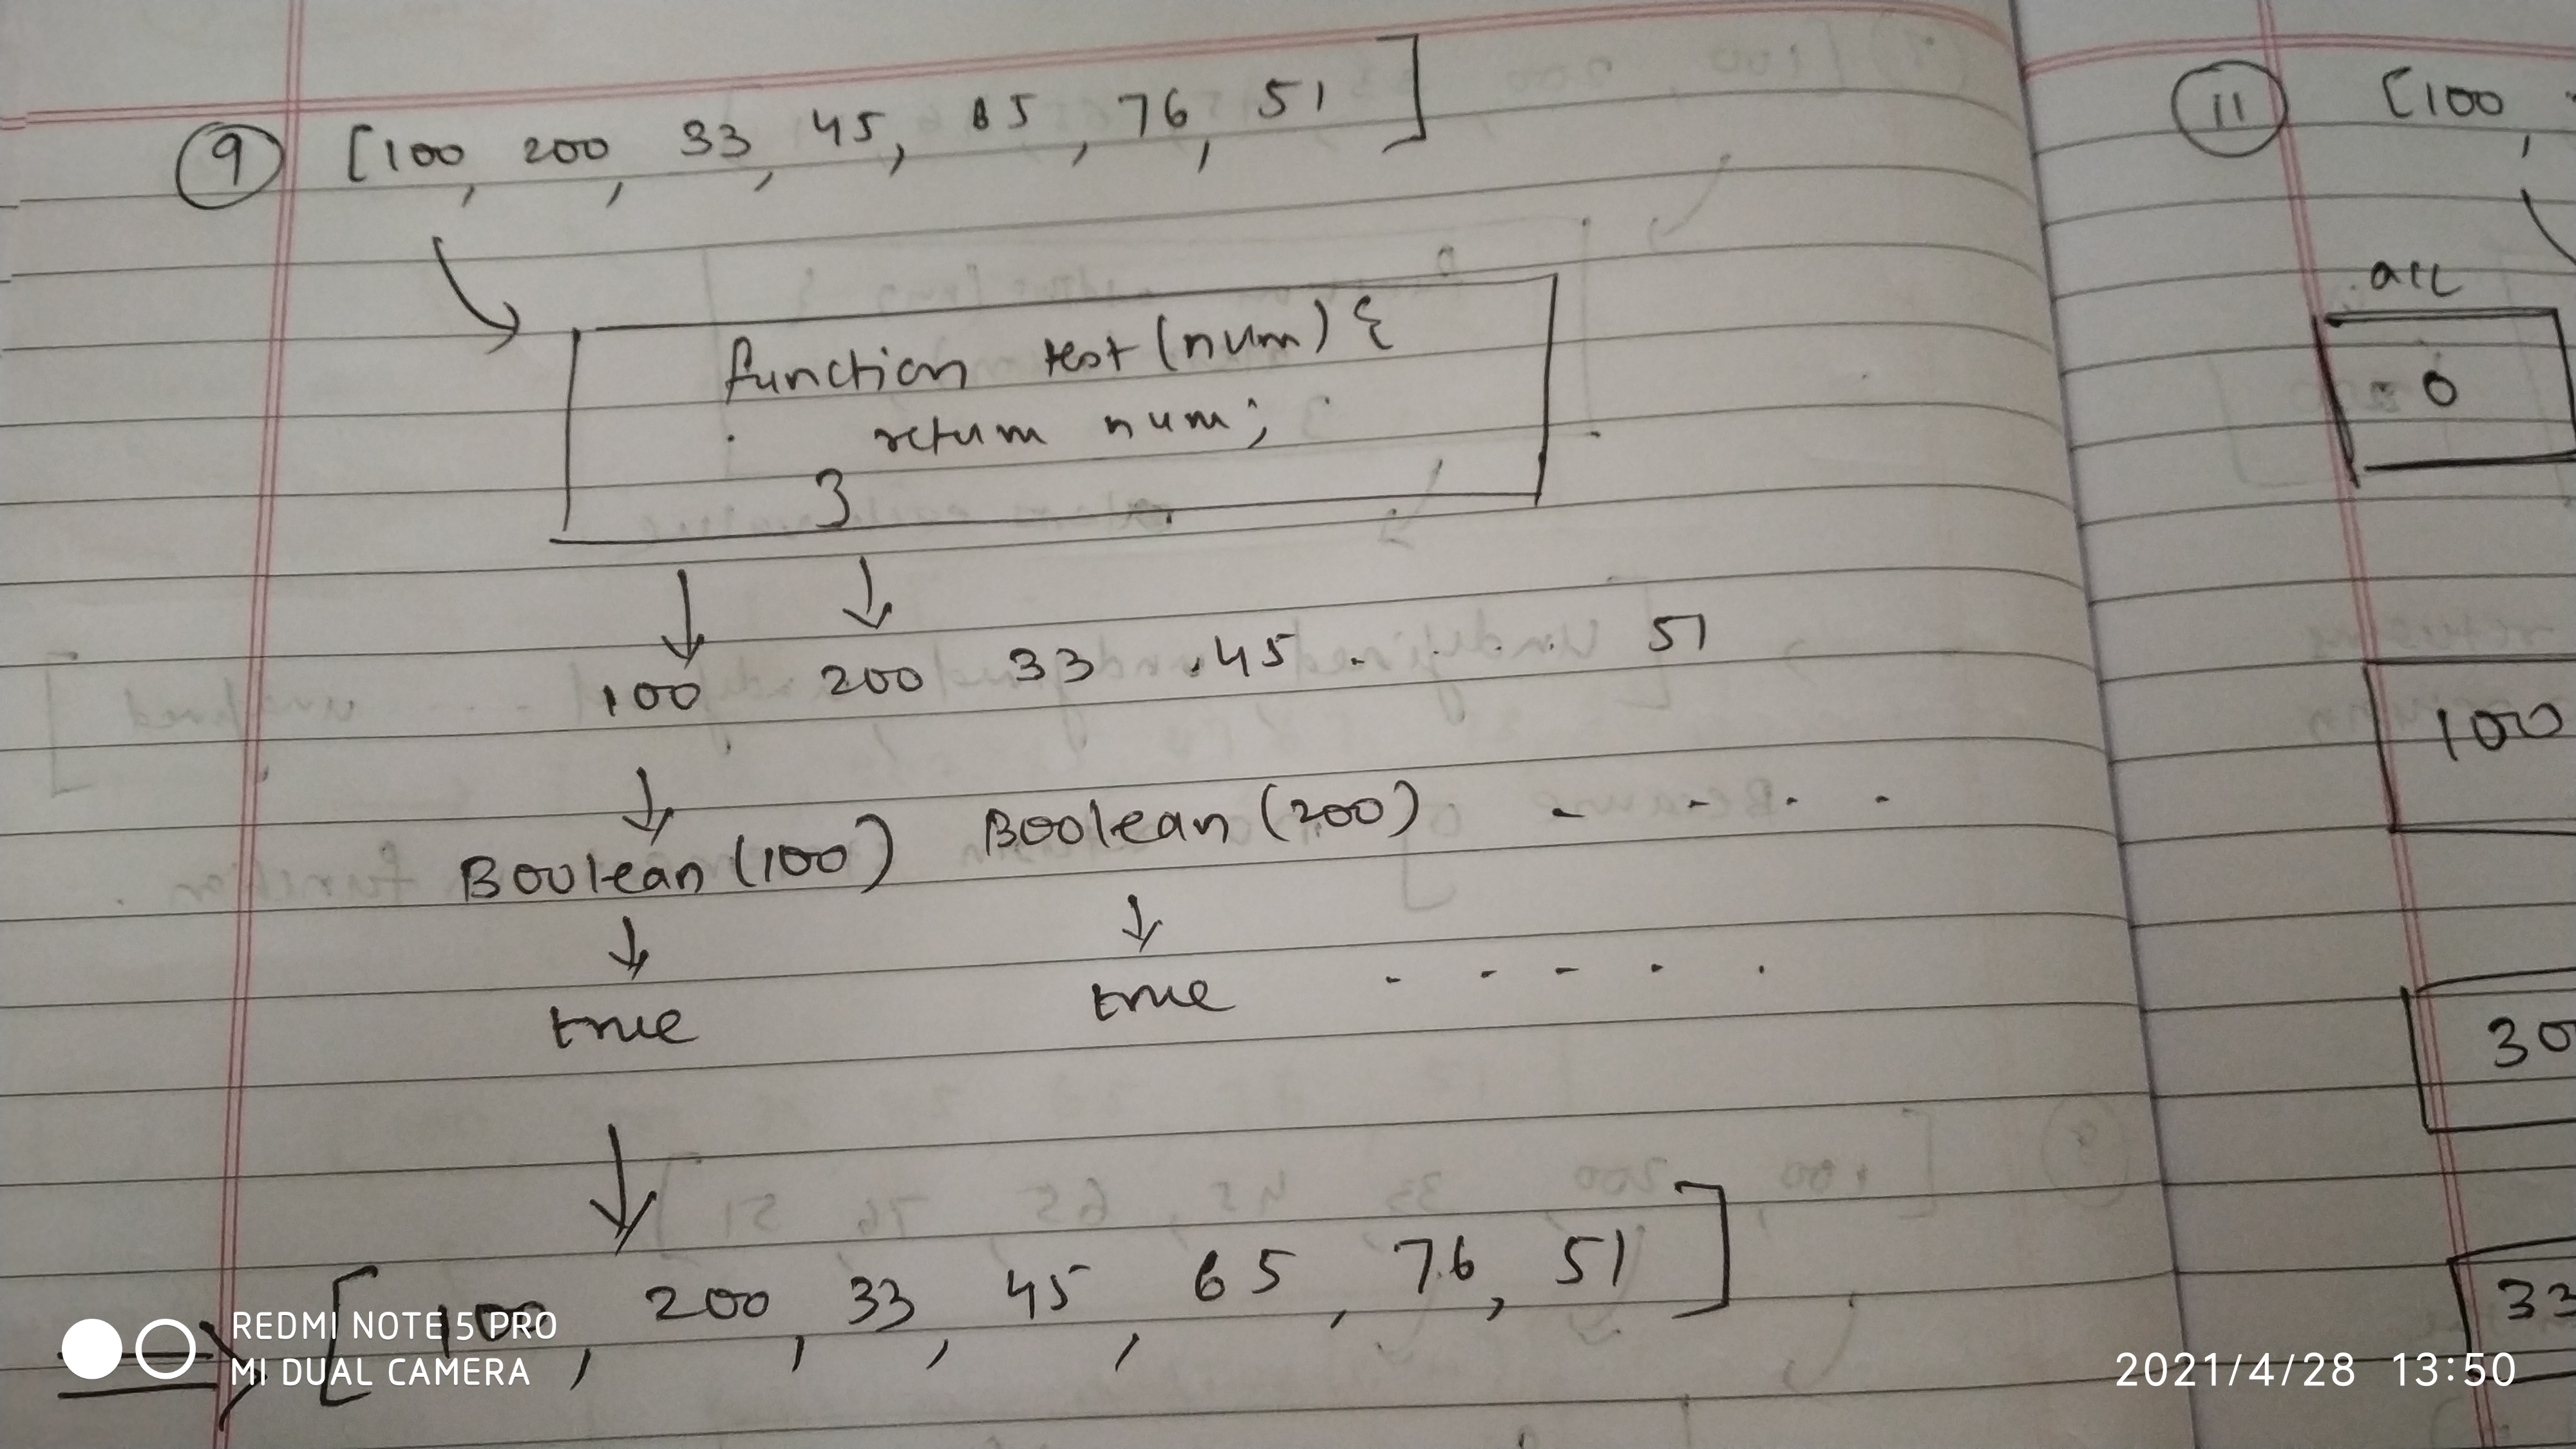 9 [100, 200, 33, 45, 65, 76, 51]
function test(num) {
return num;
}
100 200 33 45 . . . . 51
Boolean(100) Boolean(200) - - - -
true true - - - - -
=> [100, 200, 33, 45, 65, 76, 51]
11 [100,
acc
0
100
30
33
REDMI NOTE 5 PRO
MI DUAL CAMERA
2021/4/28 13:50